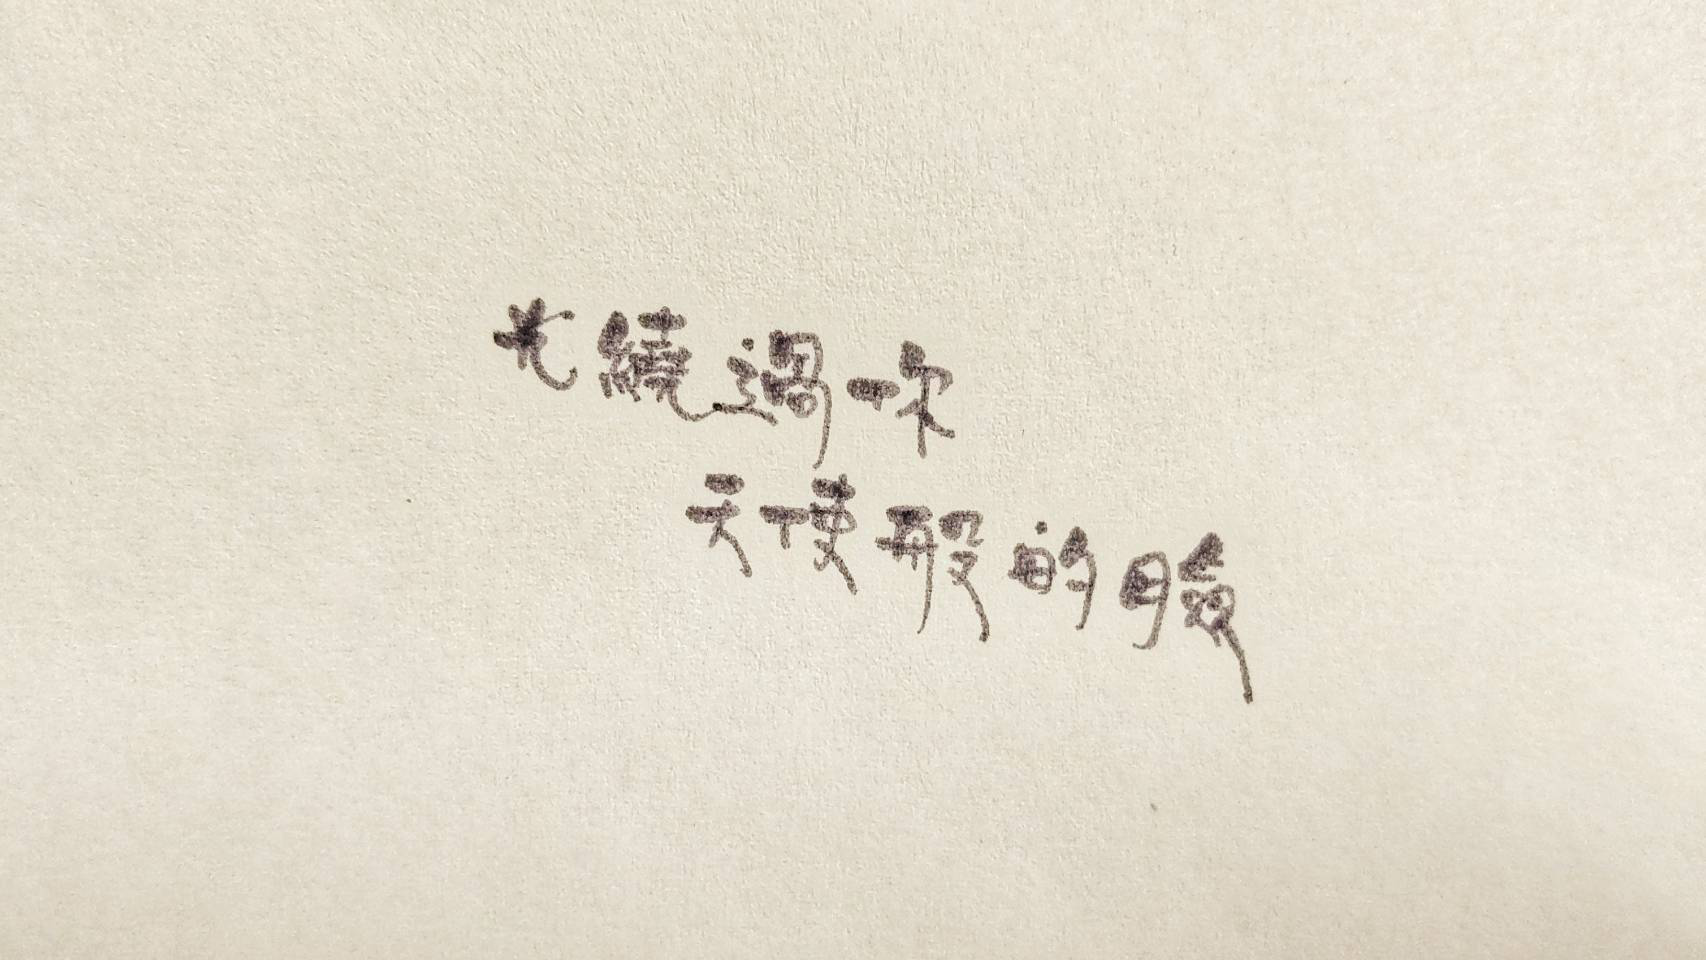 光繞過妳
天使般的臉